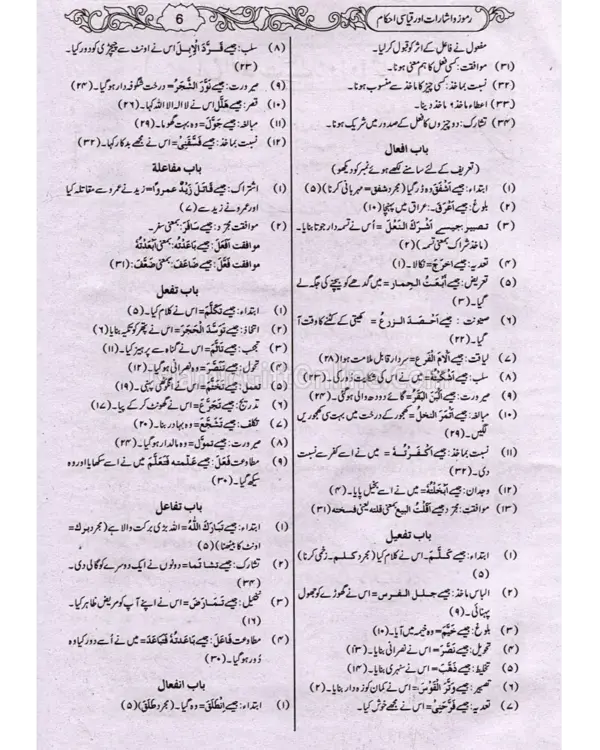 رموز و اشارات اور قیاسی احکام
6
مفعول نے فاعل کے اثر کو قبول کر لیا۔
(۳۱) موافقت: کسی فعل کا ہم معنی ہونا۔
(۳۲) نسبت بماخذ: کسی چیز کا ماخذ سے منسوب ہونا۔
(۳۳) اعطاء ماخذ: ماخذ دینا۔
(۳۴) تشارک: دو چیزوں کا فعل کے صدور میں شریک ہونا۔
باب افعال
(تعریف کے لئے سامنے لکھے ہوئے نمبر کو دیکھو)
(۱) ابتداء: جیسے أَشْفَقَ وہ ڈر گیا (مجرد شفق = مہربانی کرنا) (۵)
(۲) بلوغ: جیسے أَعْرَقَ۔ عراق میں پہنچا (۱۰)
(۳) تصییر: جیسے أَشْرَكَ النَّعْلَ = اُس نے تسمہ دار جوتا بنایا۔
(ماخذ شراک بمعنی تسمہ) (۲)
(۴) تعدیہ: جیسے اخرج = نکالا۔ (۱)
(۵) تعریض: جیسے أَبَعْتُ الحِمار = میں گدھے کو بیچنے کی جگہ لے
گیا۔ (۳)
(۶) صیرونت: جیسے أَحْصَدَ الزرعُ = کھیتی کے کٹنے کا وقت آ
گیا۔ (۲۲)
(۷) لیاقت: جیسے أَلَامَ الفَرْع = سردار قابل ملامت ہوا (۲۸)
(۸) سلب: جیسے أَشْكَيْتُهُ = میں نے اس کی شکایت دور کی۔
(۹) صیرورت: جیسے أَلْبَنَ البَقَرُ = گائے دودھ والی ہوگئی۔ (۲۳)
(۱۰) مبالغہ: جیسے أَثْمَرَ النخلُ = کھجور کے درخت میں بہت سی کھجوریں
لگیں۔ (۲۹)
(۱۱) نسبت بماخذ: جیسے أَكْفَرْتُهُ = میں نے اسے کفر سے نسبت
دی۔ (۳۲)
(۱۲) وجدان: جیسے أَبْخَلْتُهُ = میں نے اسے بخیل پایا۔ (۴)
(۱۳) موافقت: مجرد جیسے أَقَلْتُ البیع بمعنی قلته یعنی فسخته (۳۱)
باب تفعیل
(۱) ابتداء: جیسے كَلَّمَ۔ اس نے کلام کیا (مجرد كلم۔ زخمی کرنا)
(۵)
(۲) الباس ماخذ: جیسے جلل الفرس = اس نے گھوڑے کو جھول
پہنائی۔ (۹)
(۳) بلوغ: جیسے خَيَّمَ = وہ خیمہ میں آیا۔ (۱۰)
(۴) تحویل: جیسے نَصَّرَ = اس نے نصرانی بنایا۔ (۱۳)
(۵) تخلیط: جیسے ذَهَّبَ = اس نے سنہری بنایا۔ (۱۴)
(۶) تصییر: جیسے وَتَّرَ القَوْسَ = اس نے کمان کو زہ دار بنایا۔ (۲)
(۷) تعدیہ: جیسے فَرَّحَنِيْ = اس نے مجھے خوش کیا۔
(۸) سلب: جیسے قَرَّدَ الْإِبِلَ اس نے اونٹ سے چیچڑی کو دور کیا۔
(۲۳)
(۹) صیرورت: جیسے نَوَّرَ الشَّجَرُ = درخت شگوفہ دار ہو گیا۔ (۲۴)
(۱۰) قصر: جیسے هَلَّلَ اس نے لا الہ الا اللہ کہا۔ (۲۶)
(۱۱) مبالغہ: جیسے جَوَّلَ = وہ بہت گھوما۔ (۲۹)
(۱۲) نسبت بماخذ: جیسے فَسَّقَنِيْ = اس نے مجھے بدکار کہا۔ (۳۲)
باب مفاعلة
(۱) اشتراک: جیسے قَاتَلَ زَيْدٌ عمروا = زید نے عمرو سے مقاتلہ کیا
اور عمرو نے زید سے (۷)
(۲) موافقت مجرد: جیسے سَافَرَ: بمعنی سفر۔
موافقت أَفْعَلَ: جیسے بَاعَدْتُهُ: بمعنی أَبْعَدْتُهُ
موافقت فَعَّلَ: جیسے ضَاعَفَ: بمعنی ضَعَّفَ: (۳۱)
باب تفعل
(۱) ابتداء: جیسے تَكَلَّمَ = اس نے کلام کیا۔ (۵)
(۲) اتخاذ: جیسے تَوَسَّدَ الْحَجَرَ = اس نے پتھر کو تکیہ بنایا (۶)
(۳) تجنب: جیسے تَأَثَّمَ = اس نے گناہ سے پرہیز کیا۔ (۱۱)
(۴) تحول: جیسے تَنَصَّرَ = وہ نصرانی ہو گیا۔ (۱۲)
(۵) جیسے تَخَتَّمَ = اس نے انگوٹھی پہنی۔ (۱۹)
(۶) تدریج: جیسے تَجَرَّعَ = اس نے گھونٹ کر کے پیا۔ (۱۷)
(۷) تکلف: جیسے تَشَجَّعَ = وہ بہادر بنا۔ (۲۰)
(۸) صیرورت: جیسے تموَّل = وہ مالدار ہو گیا۔ (۲۴)
(۹) مطاوعت فَعَّلَ: جیسے عَلَّمته فَتَعَلَّمَ میں نے اسے سکھایا اور وہ
سیکھ گیا۔ (۳۰)
باب تفاعل
(۱) ابتداء: جیسے تَبَارَكَ اللهُ = اللہ بڑی برکت والا ہے (مجرد برك =
اونٹ کا بیٹھنا) (۵)
(۲) تشارک: جیسے تشاتما = دونوں نے ایک دوسرے کو گالی دی۔
(۳۴)
(۳) تخییل: جیسے تَمَارَضَ = اس نے اپنے آپ کو مریض ظاہر کیا۔
(۱۶)
(۴) مطاوعت فَاعَلَ: جیسے بَاعَدتُهُ فَتَبَاعَدَ = میں نے اُسے دور کیا وہ
دُور ہو گیا۔ (۳۰)
باب انفعال
(۱) ابتداء: جیسے اِنْطَلَقَ = وہ گیا۔ (مجرد طَلَقَ) (۵)